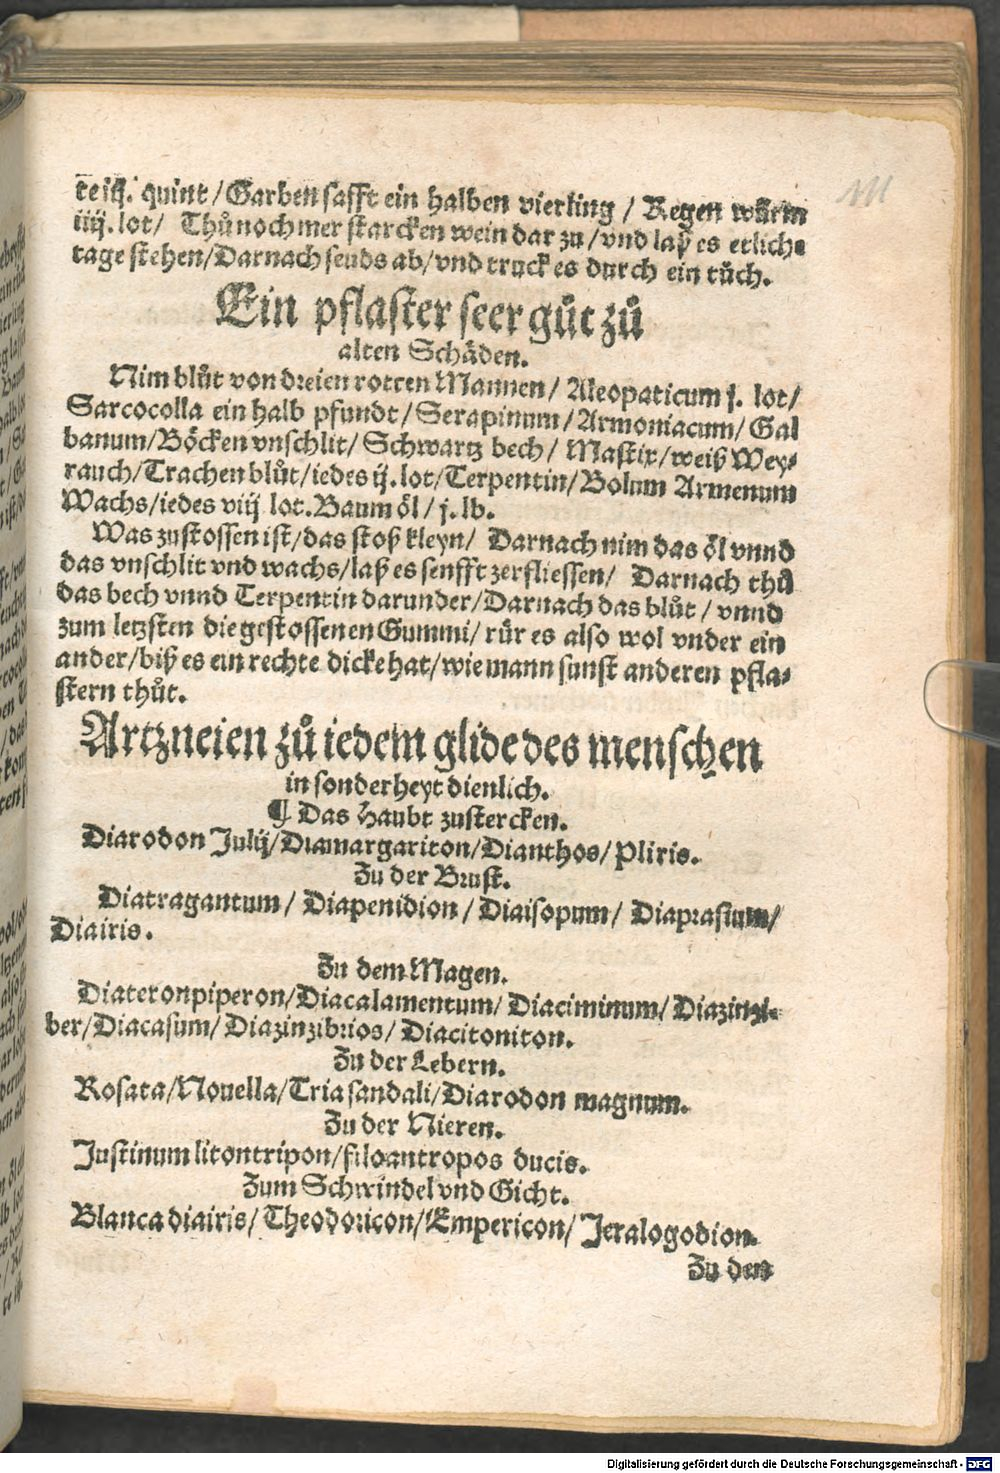 te iij. quint / Garben safft ein halben vierling / Regen würm
iiij. lot / Thů noch mer starcken wein dar zu / vnd laß es etliche
tage stehen / Darnach seuds ab / vnd truck es durch ein tůch.
Ein pflaster seer gůt zů
alten Schäden.
Nim blůt von dreien rotten Mannen / Aleopaticum j. lot /
Sarcocolla ein halb pfundt / Serapinum / Armoniacum / Gal
banum / Böcken vnschlit / Schwartz bech / Mastix / weiß Wey⸗
rauch / Trachen blůt / iedes ij. lot / Terpentin / Bolum Armenum
Wachs / iedes viij lot. Baum öl / j. lb.
Was zustossen ist / das stoß kleyn / Darnach nim das öl vnnd
das vnschlit vnd wachs / laß es senfft zerfliessen / Darnach thů
das bech vnnd Terpentin darunder / Darnach das blůt / vnnd
zum letzsten die gestossenen Gummi / rür es also wol vnder ein
ander / biß es ein rechte dicke hat / wie mann sunst anderen pfla⸗
stern thůt.
Artzneien zů iedem glide des menschen
in sonderheyt dienlich.
¶ Das Haubt zustercken.
Diarodon Julij / Diamargariton / Dianthos / Pliris.
Zu der Brust.
Diatragantum / Diapenidion / Diaisopum / Diaprasium /
Diairis.
Zu dem Magen.
Diateronpiperon / Diacalamentum / Diaciminum / Diazinzi⸗
ber / Diacasum / Diazinzibrios / Diacitoniton.
Zu der Lebern.
Rosata / Nouella / Tria sandali / Diarodon magnum.
Zu der Nieren.
Justinum litontripon / filoantropos ducis.
Zum Schwindel vnd Gicht.
Blanca diairis / Theodoricon / Empericon / Jeralogodion.
Zu den
Digitalisierung gefördert durch die Deutsche Forschungsgemeinschaft - DFG